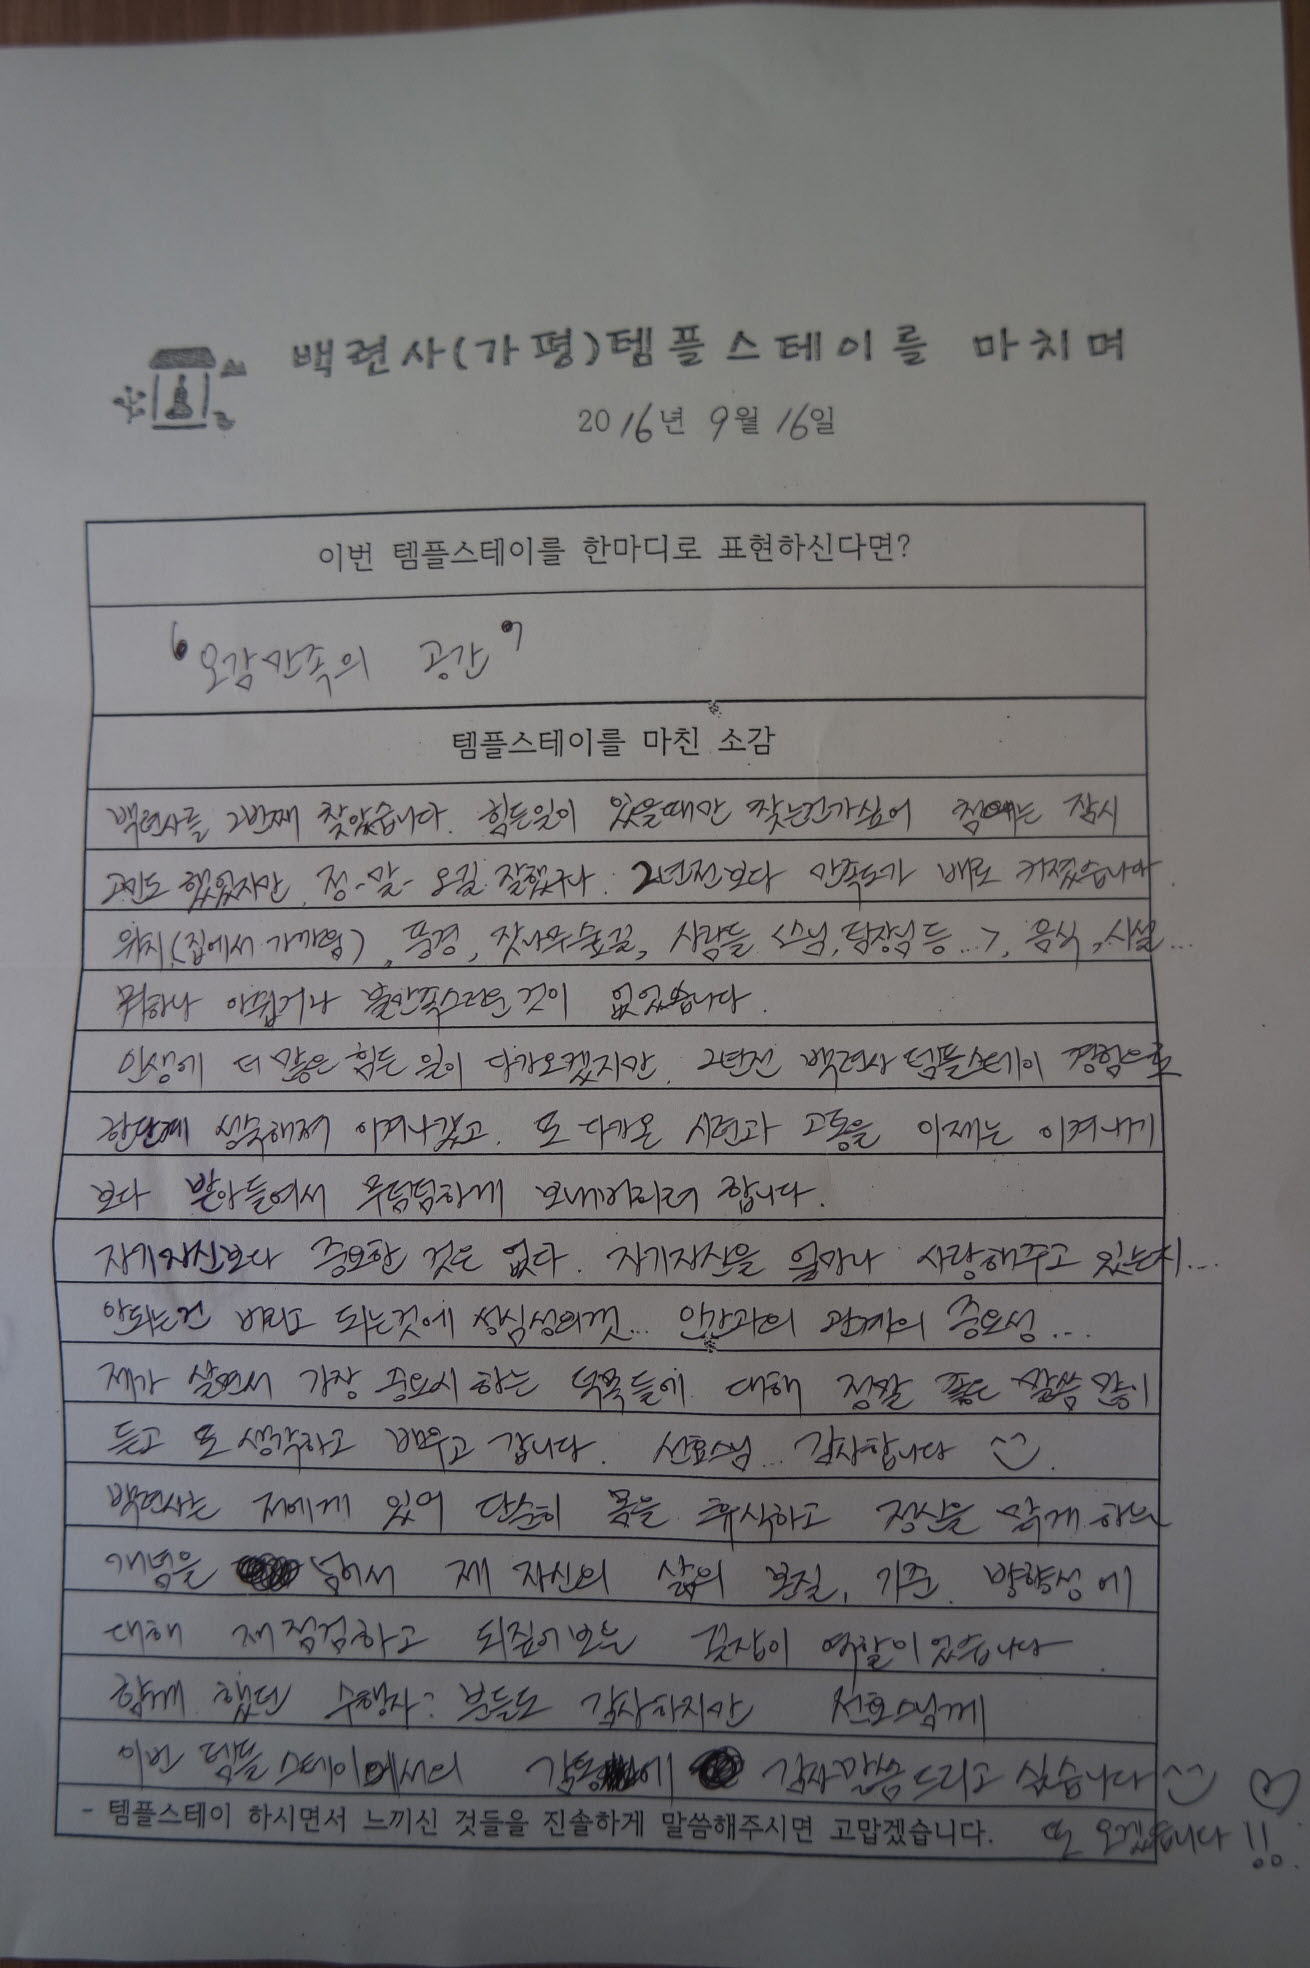 백련사(가평)템플스테이를 마치며
2016년 9월 16일
이번 템플스테이를 한마디로 표현하신다면?
"오감만족의 공간"
템플스테이를 마친 소감
백련사를 2번째 찾았습니다. 힘든일이 있을때만 찾는건가싶어 첨에는 잠시
고민도 했었지만, 정-말- 오길 잘했구나. 2년전보다 만족도가 배로 커졌습니다.
위치(집에서 가까움), 풍경, 잣나무숲길, 사람들 <스님, 팀장님 등...>, 음식, 시설...
뭐하나 아쉽거나 불만족스러운 것이 없었습니다.
인생에 더 많은 힘든 일이 다가오겠지만, 2년전 백련사 템플스테이 경험으로
한단계 성숙해져 이겨나갔고, 또 다가온 시련과 고통을 이제는 이겨내기
보다 받아들여서 무덤덤하게 보내버리려 합니다.
자기자신보다 중요한 것은 없다. 자기자신을 얼마나 사랑해주고 있는지...
안되는건 버리고 되는것에 성심성의껏... 인간과의 관계의 중요성...
제가 살면서 가장 중요시 하는 덕목들에 대해 정말 좋은 말씀 많이
듣고 또 생각하고 배우고 갑니다. 선효스님... 감사합니다
백련사는 저에게 있어 단순히 몸을 휴식하고 정신을 맑게 하는
개념을 넘어서 제 자신의 삶의 본질, 기준, 방향성에
대해 재점검하고 되짚어보는 길잡이 역할이었습니다.
함께 했던 수행자: 분들도 감사하지만 선효스님께
이번 템플스테이에서의 감동에 감사말씀 드리고 싶습니다 ♡
- 템플스테이 하시면서 느끼신 것들을 진솔하게 말씀해주시면 고맙겠습니다.
또 오겠습니다!!